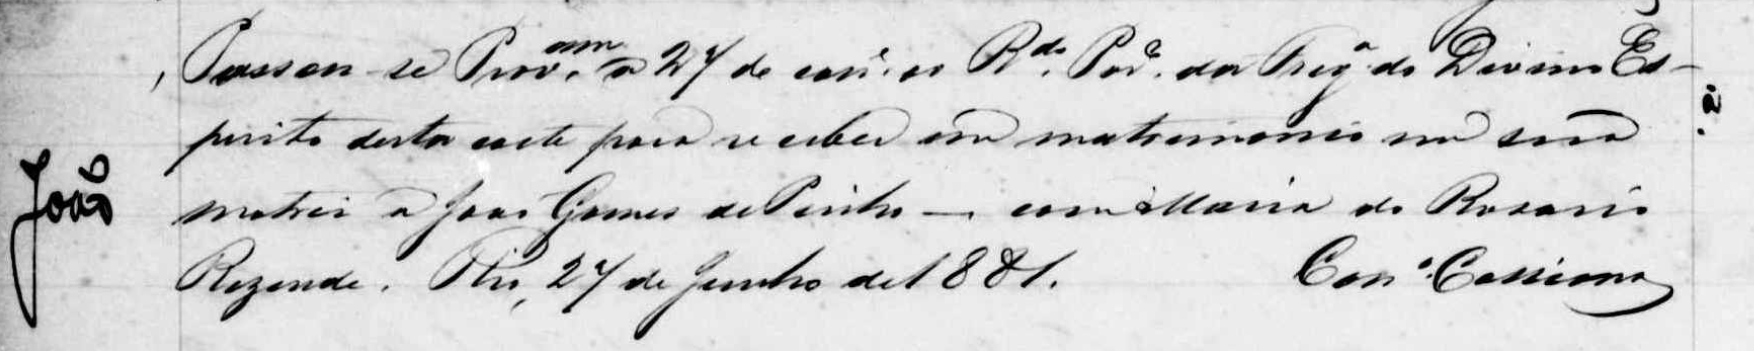 João
Passou-se Prov.am a 27 de corr.e ao R.do Par.o da Freg.a do Divino Es-
pirito desta corte para receber em matrimonio na sua
matriz a João Gomes de Pinho — com Maria do Rosario
Rezende. Rio, 27 de Junho de 1881. Con.o Cassiano
.2.